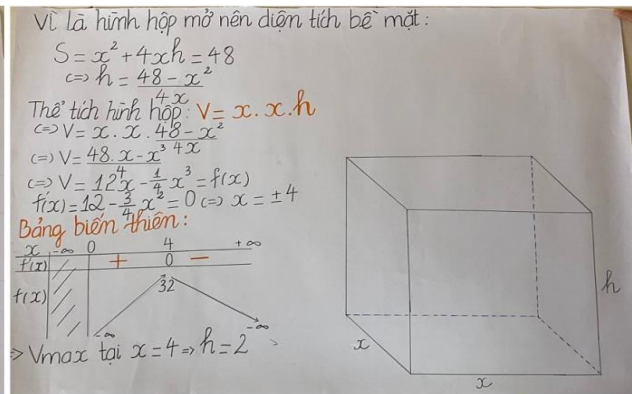 Vì là hình hộp mở nên diện tích bề mặt:
S = x² + 4xh = 48
(=) h = 48 - x² / 4x
Thể tích hình hộp: V = x . x . h
(=) V = x . x . 48 - x² / 4x
(=) V = 48. x - x³ / 4
(=) V = 12x - 1/4 x³ = f(x)
f'(x) = 12 - 3/4 x² = 0 (=) x = ± 4
Bảng biến thiên:
x -∞ 0 4 +∞
f'(x) + 0 -
f(x) -∞ 32 -∞
=> Vmax tại x = 4 => h = 2
h
x
x